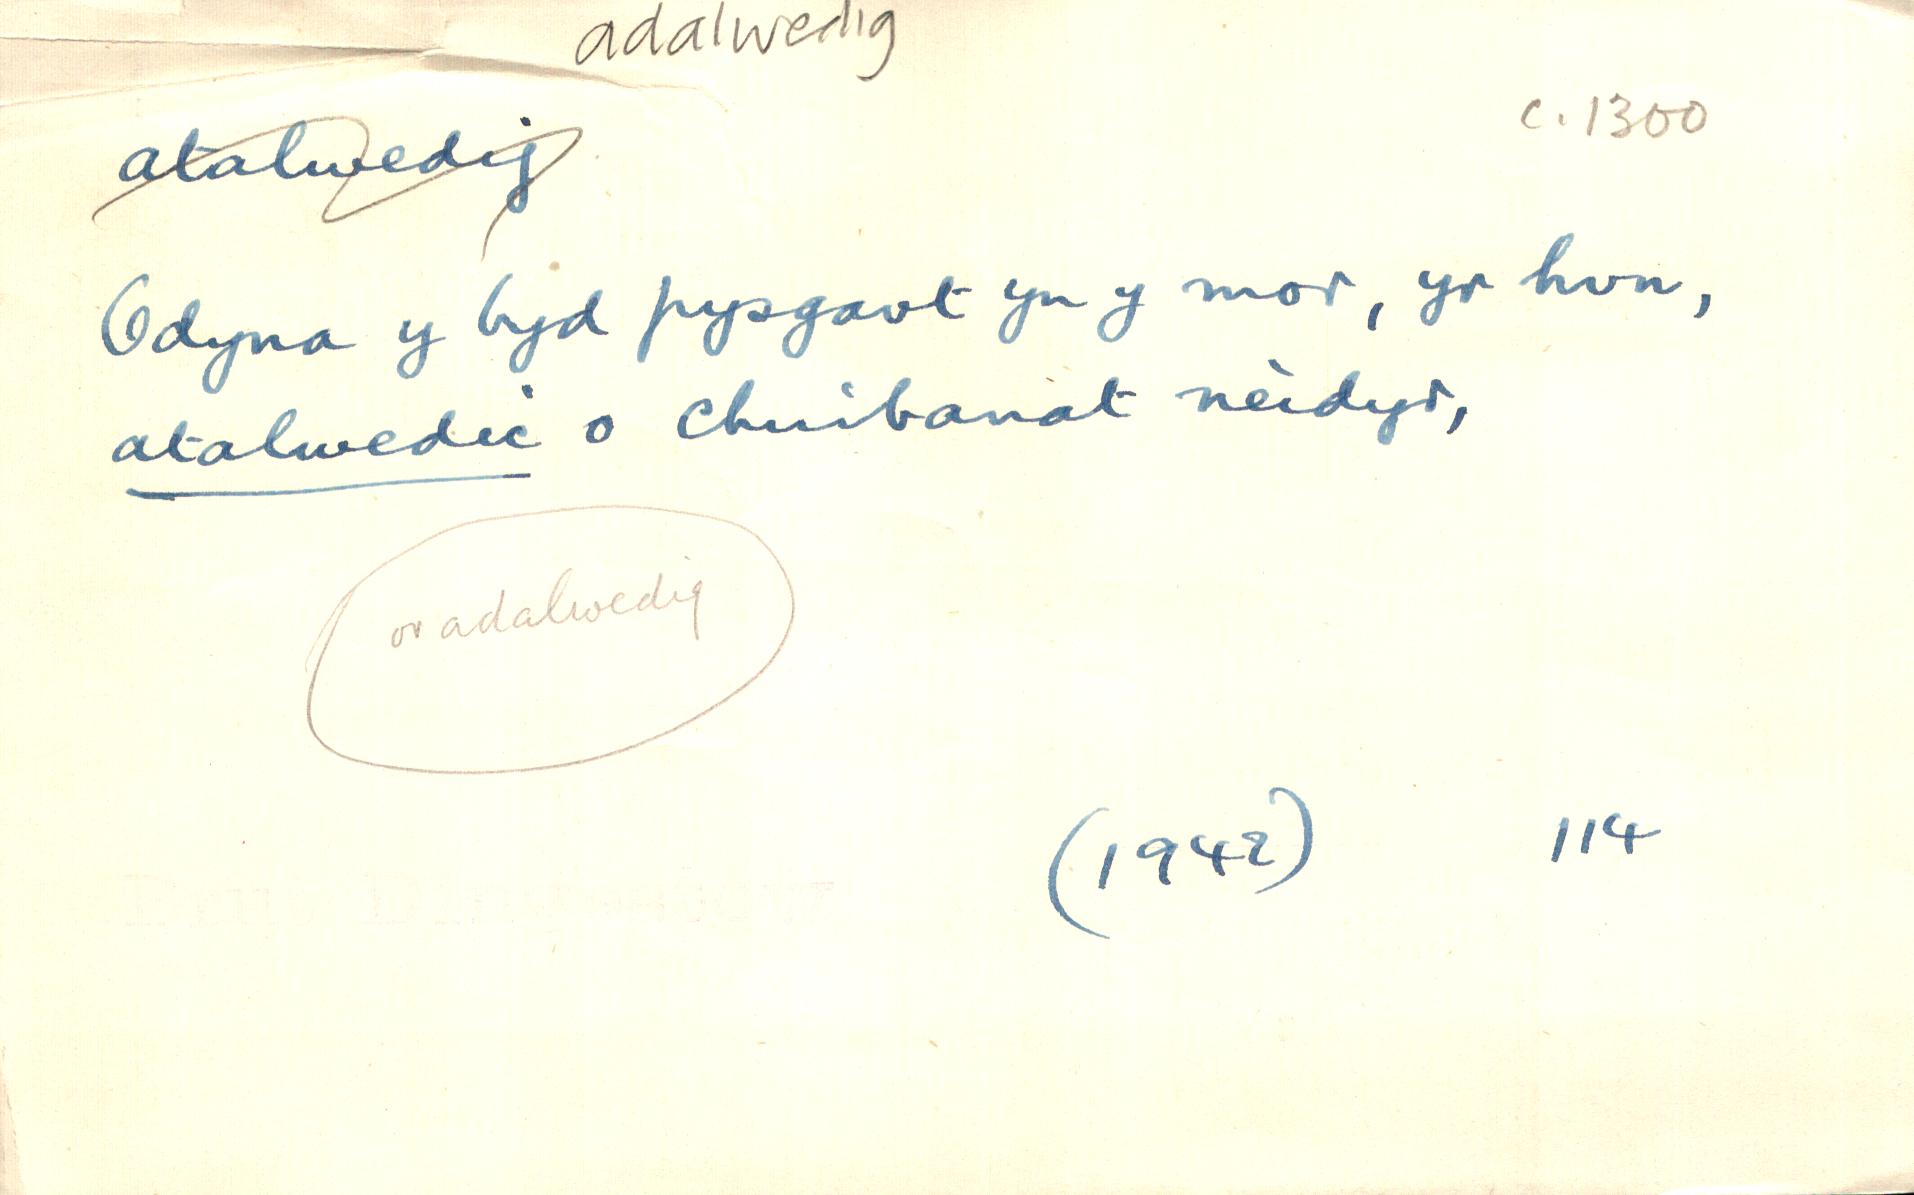 adalwedig
c. 1300
atalwedig
Odyna y byd pysgavt yn y mor, yr hvn,
atalwedic o chuibanat neidyr,
or adalwedig
(1942) 114